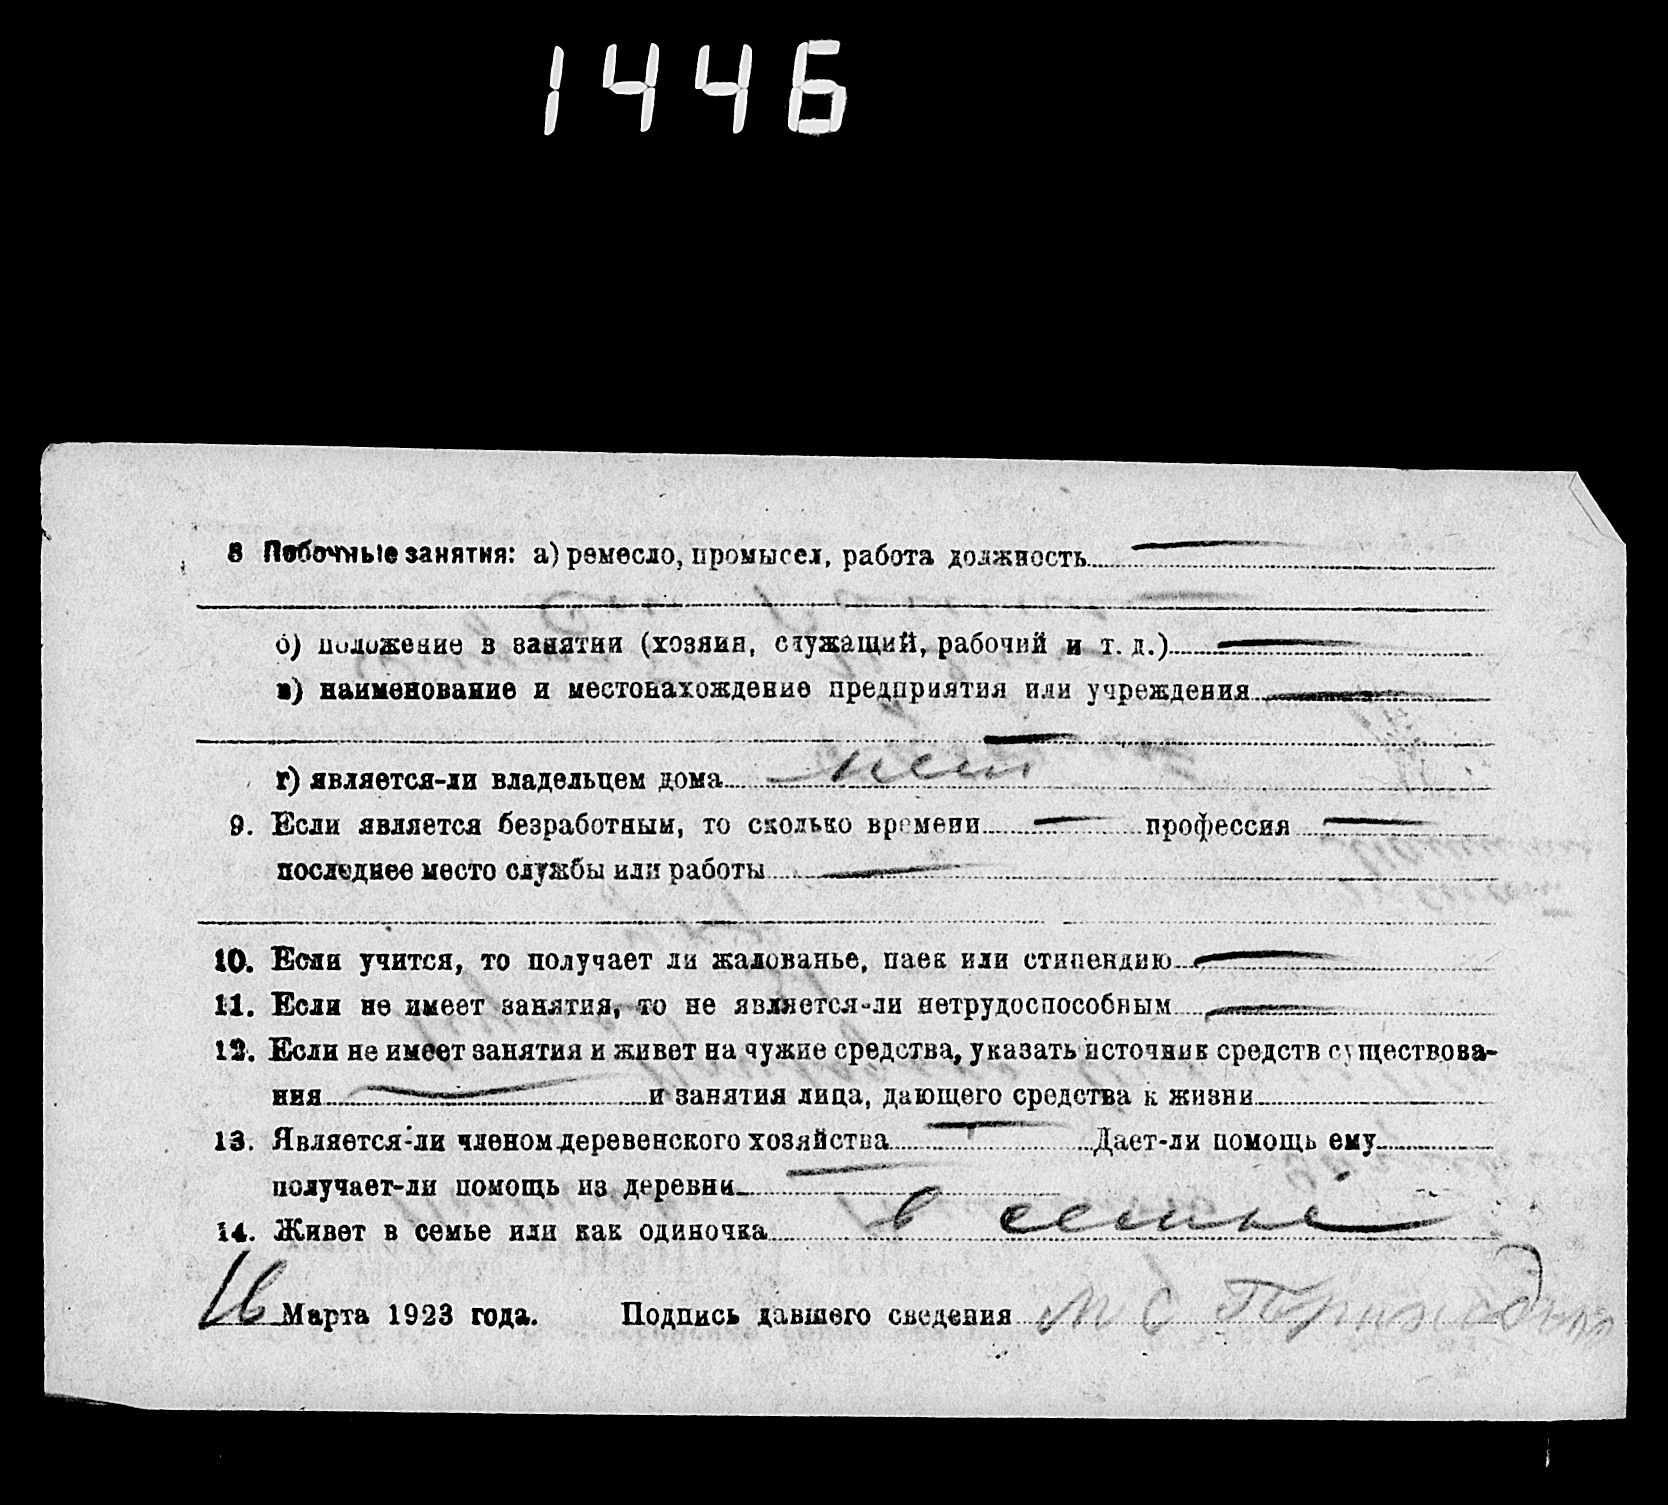 1446
8 Побочные занятия: а) ремесло, промысел, работа должность —
—
б) положение в занятии (хозяин, служащий, рабочий и т. д.) —
в) наименование и местонахождение предприятия или учреждения —
—
г) является-ли владельцем дома нет
9. Если является безработным, то сколько времени — профессия —
последнее место службы или работы —
10. Если учится, то получает ли жалованье, паек или стипендию —
11. Если не имеет занятия, то не является-ли нетрудоспособным —
12. Если не имеет занятия и живет на чужие средства, указать источник средств существова-
ния — и занятия лица, дающего средства к жизни
13. Является-ли членом деревенского хозяйства — Дает-ли помощь ему
получает-ли помощь из деревни —
14. Живет в семье или как одиночка в семье
16 Марта 1923 года. Подпись давшего сведения